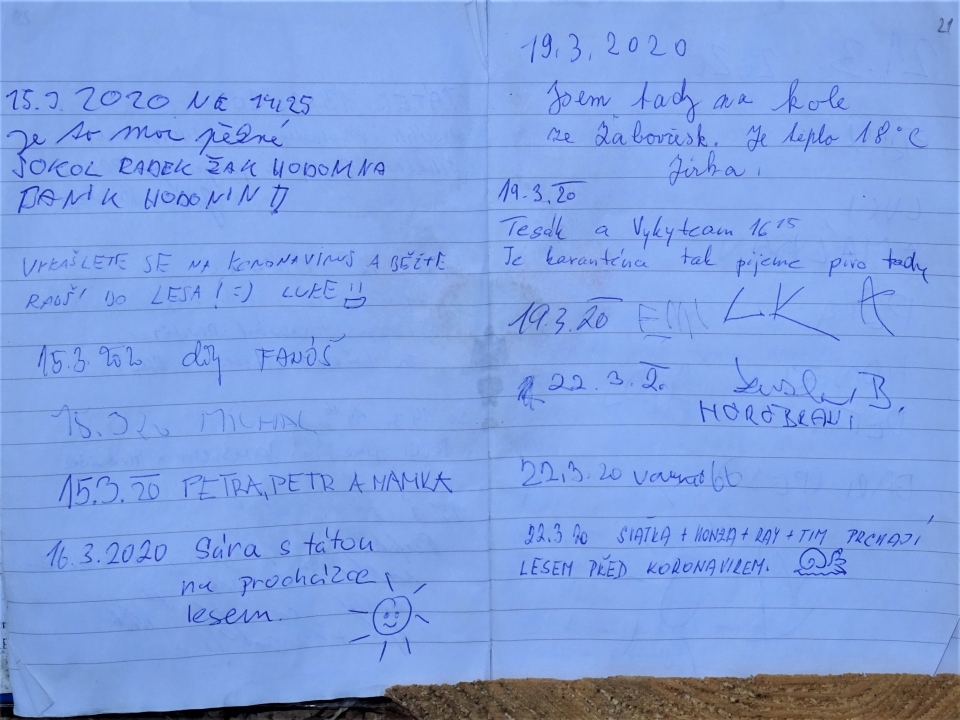 15.3.2020 NE 14:25
je to moc pěkné
SOKOL RADEK ŽAK HODONÍNA
DANÍK HODONÍN !!
VYKAŠLETE SE NA KORONAVIRUS A BĚŽTE
RADŠI DO LESA! =) LUKE
15.3.2020 díky FANÓŠ
15.3 20 MICHAL
15.3.20 PETRA, PETR A MAMKA
16.3.2020 Sára s tátou
na procházce
lesem.
21
19.3.2020
Jsem tady na kole
ze Žabovřesk. Je teplo 18°C
Jirka.
19.3.20
Tesák a Vykyteam 16 15
Je karanténa tak pijeme pivo tady
19.3.20 LK A
22.3.20 B.
22.3.20
22.3 20 SIATKA + HONZA + RAY + TIM PRCHAJÍ
LESEM PŘED KORONAVIREM.